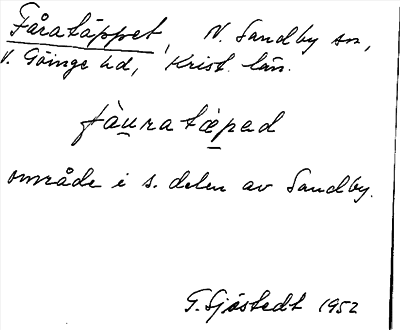 Fåratäppet, N. Sandby sn,
V. Göinge hd, Krist. län.
fàuratæpad
område i s. delen av Sandby.
G. Sjöstedt 1952